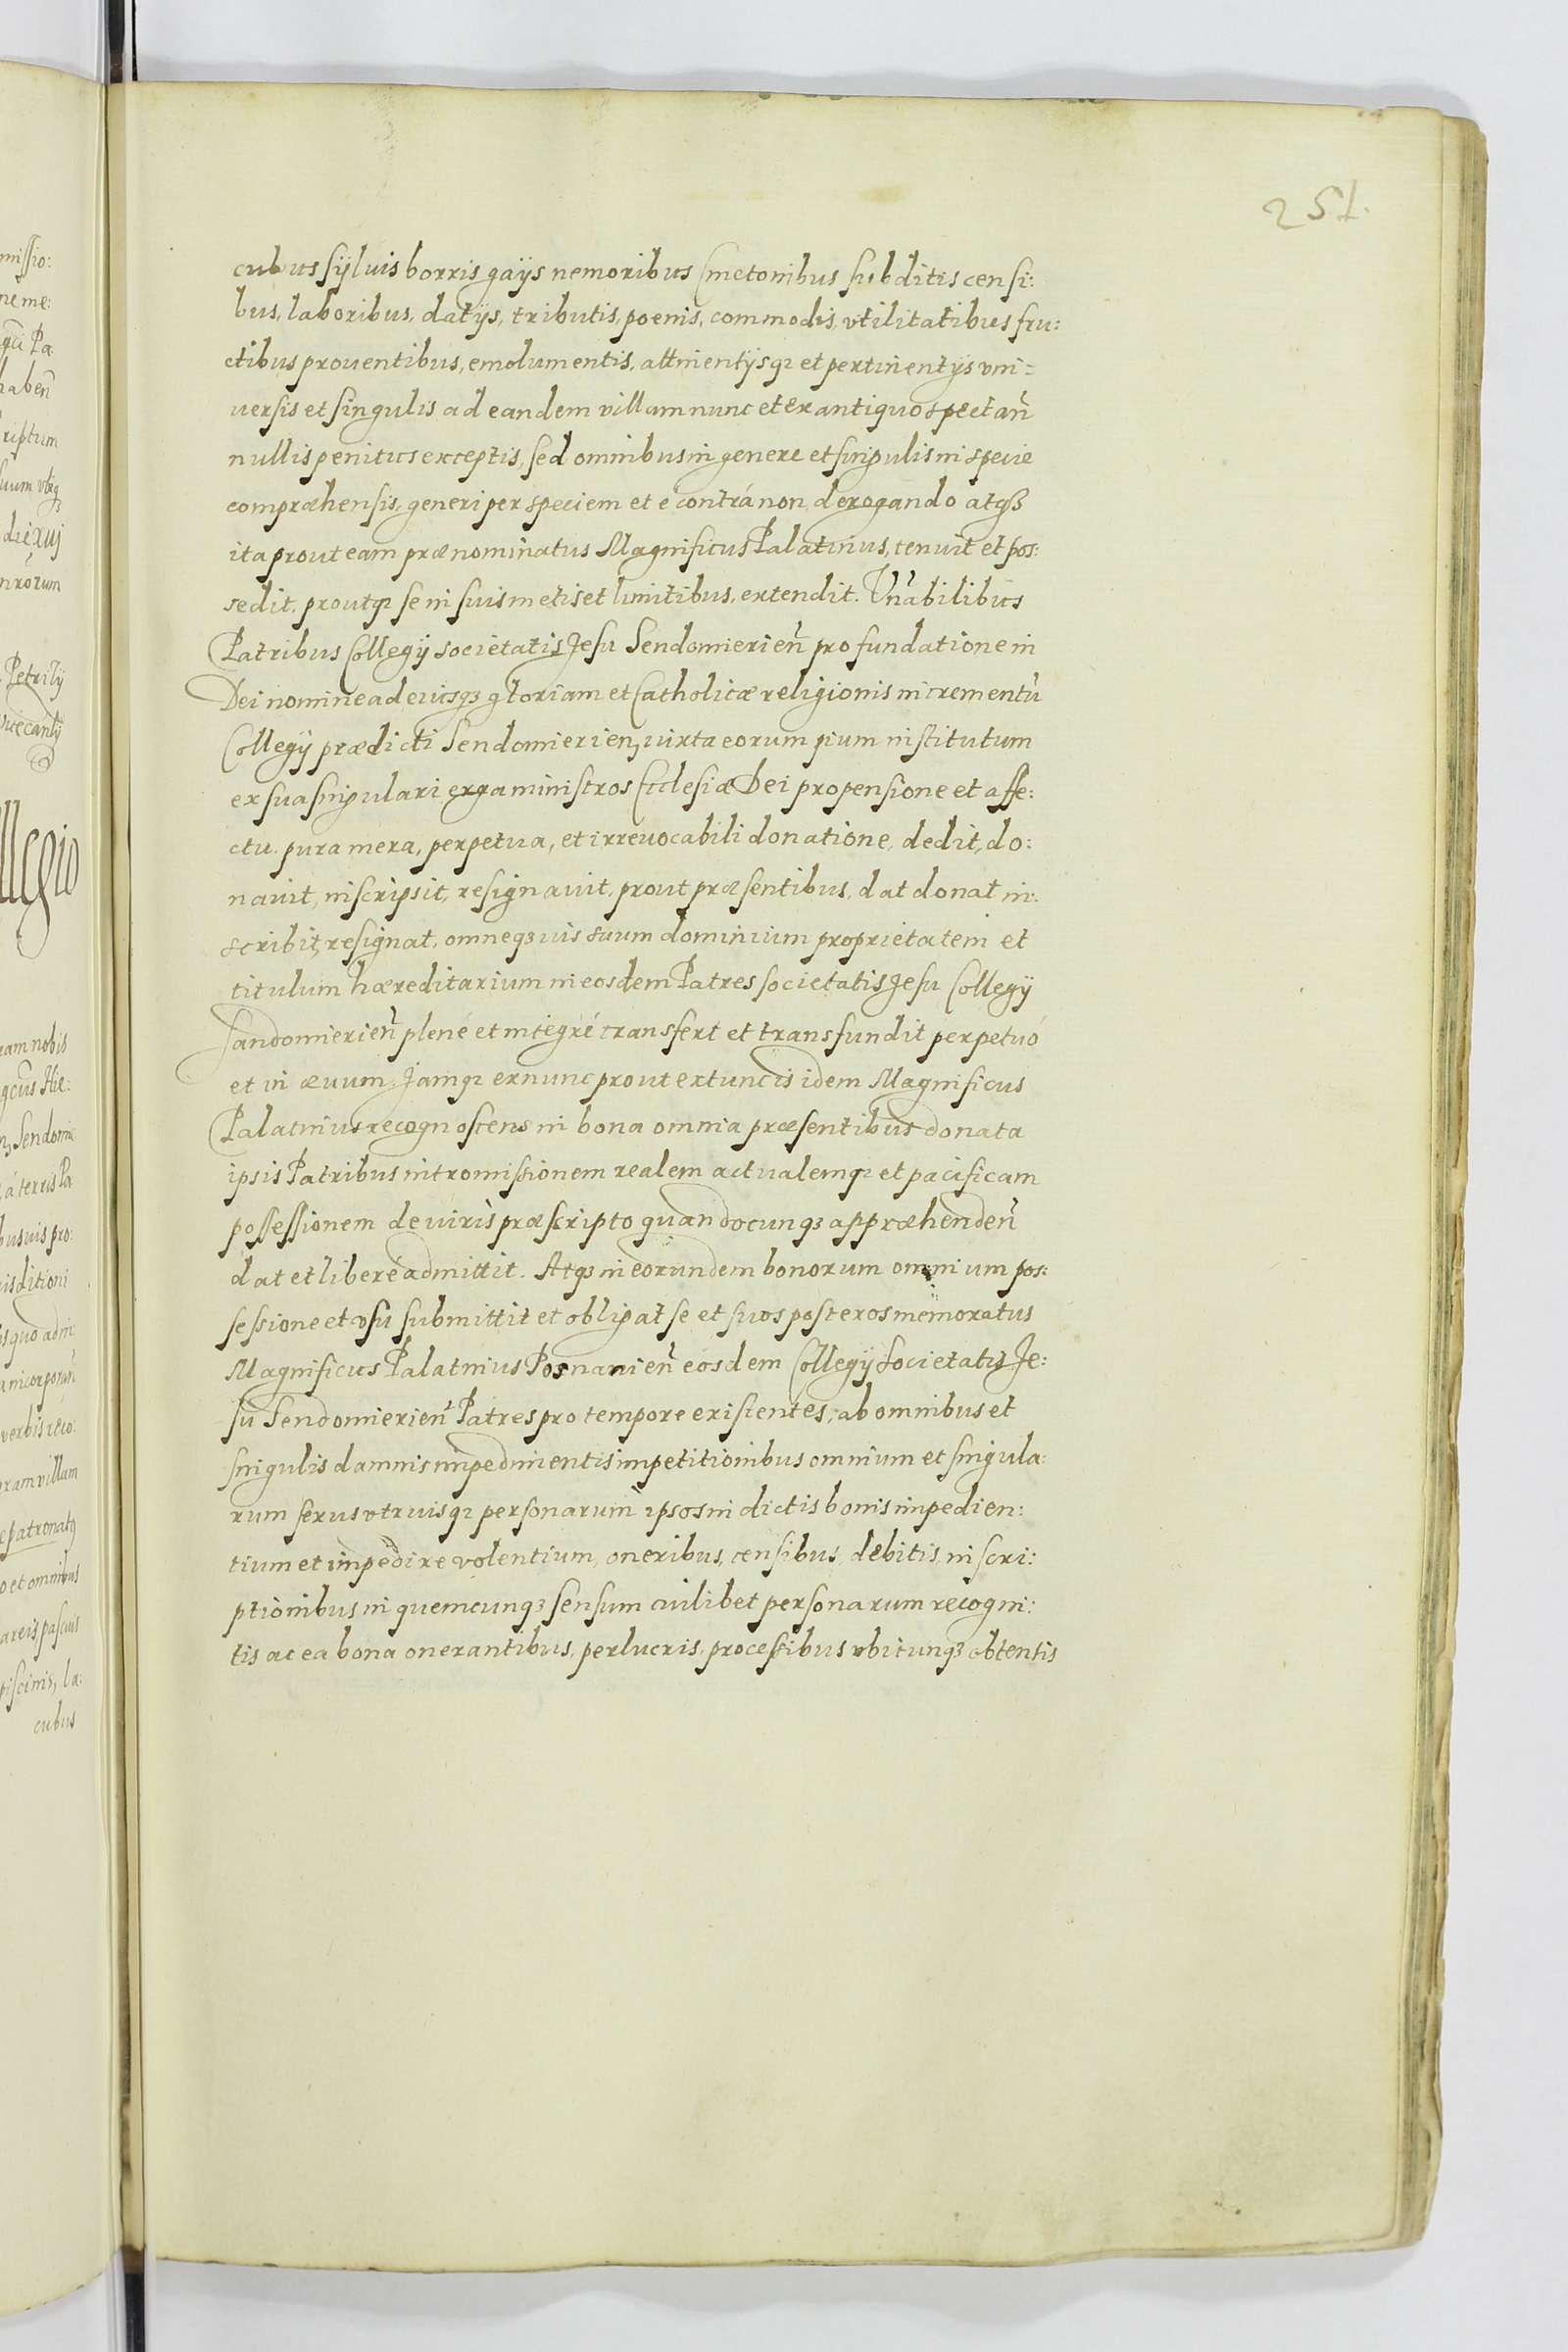 251.
cubus sijluis borris gaijs nemoribus Cmetonibus subditis censi:
bus, laboribus, datijs, tributis, poenis, commodis, vtilitatibus fru:
ctibus prouentibus, emolumentis, attinentijsq₃ et pertinentijs vni:
uersis et singulis ad eandem villam nunc et ex antiquo spectañ
nullis penitus exceptis, sed omnibus in genere et singulis in specie
compræhensis, generi per speciem et e contrá non derogando atq₃
ita prout eam prænominatus Magnificus Palatinus, tenuit et pos:
sedit, proutq₃ se in suis metis et limitibus, extendit. Vnabilibus
Patribus Collegij societatis Jesu Sendomierieñ pro fundatione in
Dei nomine ad eiusq₃ gloriam et Catholicæ religionis incrementũ
Collegij prædicti Sendomierien₃ iuxta eorum pium institutum
ex sua singulari erga ministros Ecclesiæ Dei propensione et affe:
ctu pura mera, perpetua, et irreuocabili donatione, dedit, do:
nauit, inscripsit, resignauit, prout præsentibus, dat donat in:
scribit, resignat, omneq₃ ius suum dominium proprietatem et
titulum hæreditarium in eosdem Patres societatis Jesu Collegij
Sandomierieñ plené et integré transfert et transfundit perpetuó
et in æuum, Jamq₃ ex nunc prout ex tunc is idem Magnificus
Palatinus recognoscens in bona omnia præsentibus donata
ipsis Patribus intromissionem realem actualemq₃ et pacificam
possessionem de iuris præscripto quandocunq₃ appræhendeñ
dat et liberé admittit. Atq₃ in eorundem bonorum omnium pos:
sessione et vsu submittit et obligat se et suos posteros memoratus
Magnificus Palatinus Posnanieñ eosdem Collegij Societatis Je:
su Sendomierieñ Patres pro tempore existentes, ab omnibus et
singulis damnis impedimentis impetitionibus omnium et singula:
rum sexus vtriusq₃ personarum ipsos in dictis bonis impedien:
tium et impedire volentium, oneribus, censibus, debitis, inscri:
ptionibus in quemcunq₃ sensum cuilibet personarum recogni:
tis ac ea bona onerantibus, perlucris, processibus vbicunq₃ obtentis